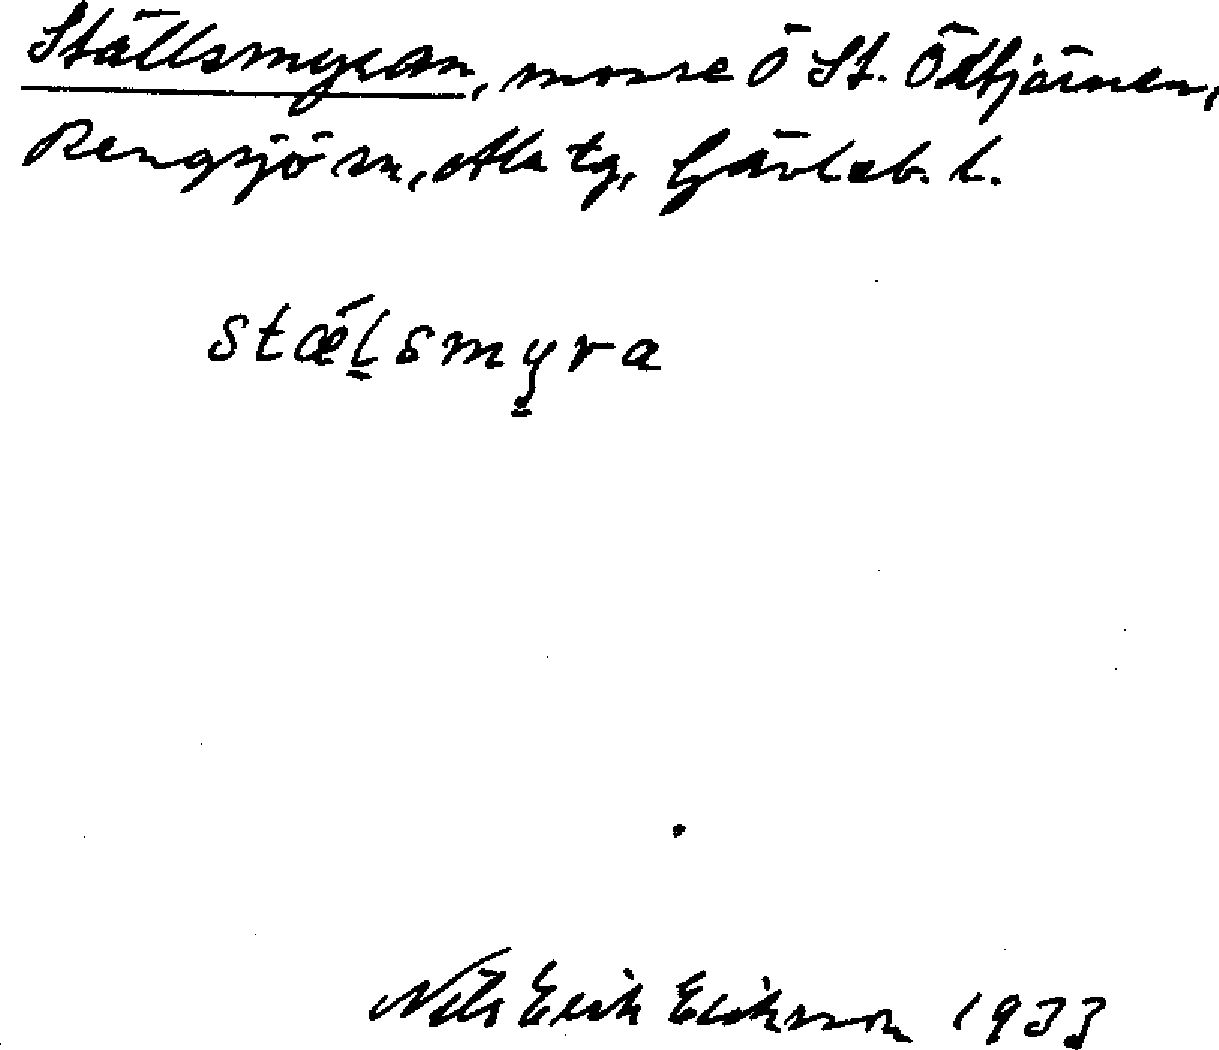 Ställsmyran, mosse Ö St. Ödtjärnen,
Rengsjö sn, Ala tg, Gävleb. l.
stǽlsmyra
Nils Erik Eriksson 1933